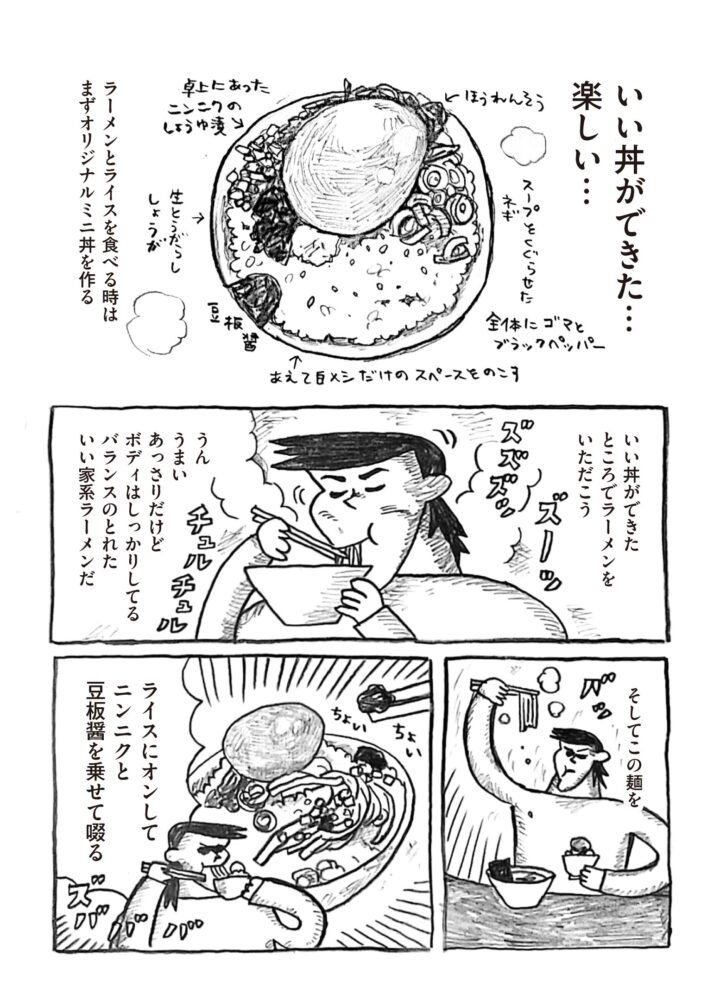 いい丼ができた…
楽しい…
ほうれんそう
卓上にあった
ニンニクの
しょうゆ漬
スープをくぐらせた
ネギ
生とうがらし
しょうが
豆板醤
全体にゴマと
ブラックペッパー
あえて白メシだけのスペースをのこす
ラーメンとライスを食べる時は
まずオリジナルミニ丼を作る
いい丼ができた
ところでラーメンを
いただこう
ズズズッ
ズーッ
うん
うまい
あっさりだけど
ボディはしっかりしてる
バランスのとれた
いい家系ラーメンだ
チュルチュル
そしてこの麺を
バッ
ちょい
ちょい
ライスにオンして
ニンニクと
豆板醤を乗せて啜る
ズバババ